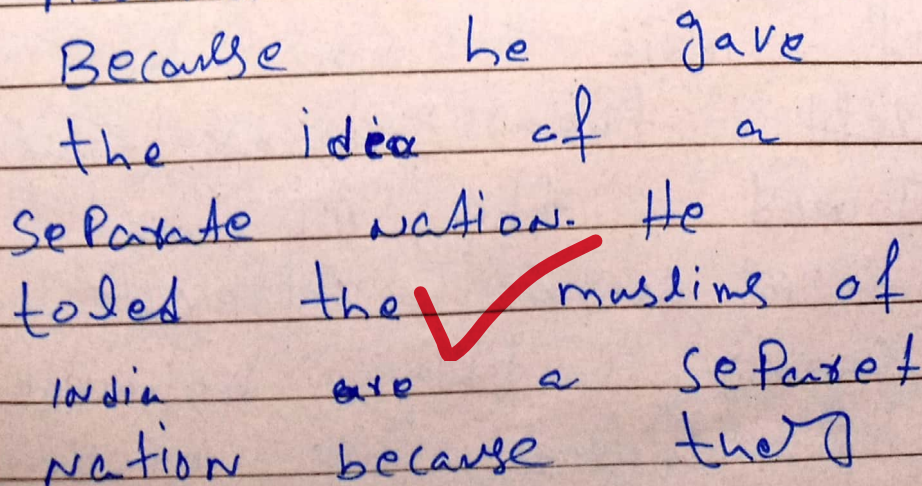 Because he gave
the idea of a
separate nation. He
toled the muslims of
india are a separet
nation because they